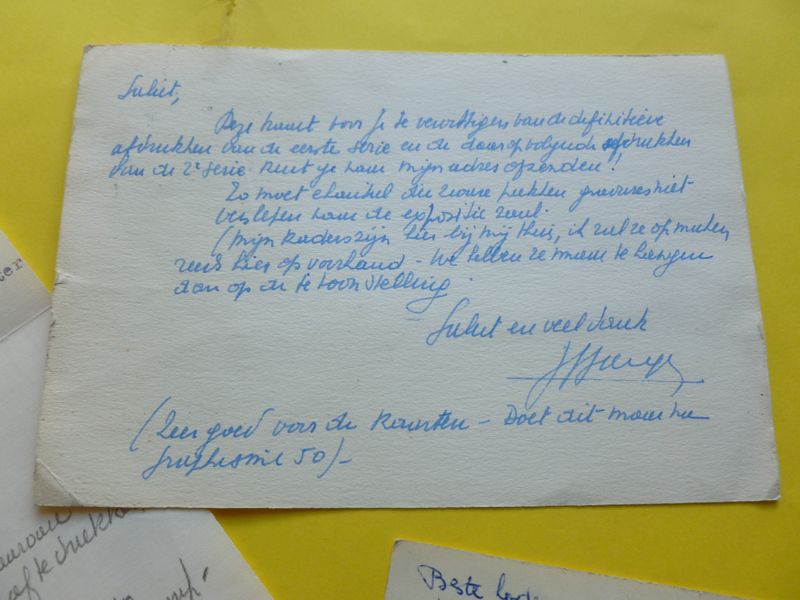 Saluut,
Deze kaart voor je te vervittigen van de definitieve
afdrukken van de eerste serie en de daaropvolgende afdrukken
van de 2e serie kunt ge naar mijn adres opzenden!
Zo moet chantiel die zware pakken gravures niet
versleten naar de expositie zaal.
(Mijn kaders zijn hier bij mij thuis, ik zal ze opmaken
reeds hier op voorhand - We hebben ze maar te hangen
dan op de tentoonstelling.
Saluut en veel dank
(Zeer goed voor de kaarten - Doet dit maar na
grafhesme 50/-
ter
waarvan
af te drukken
Beste